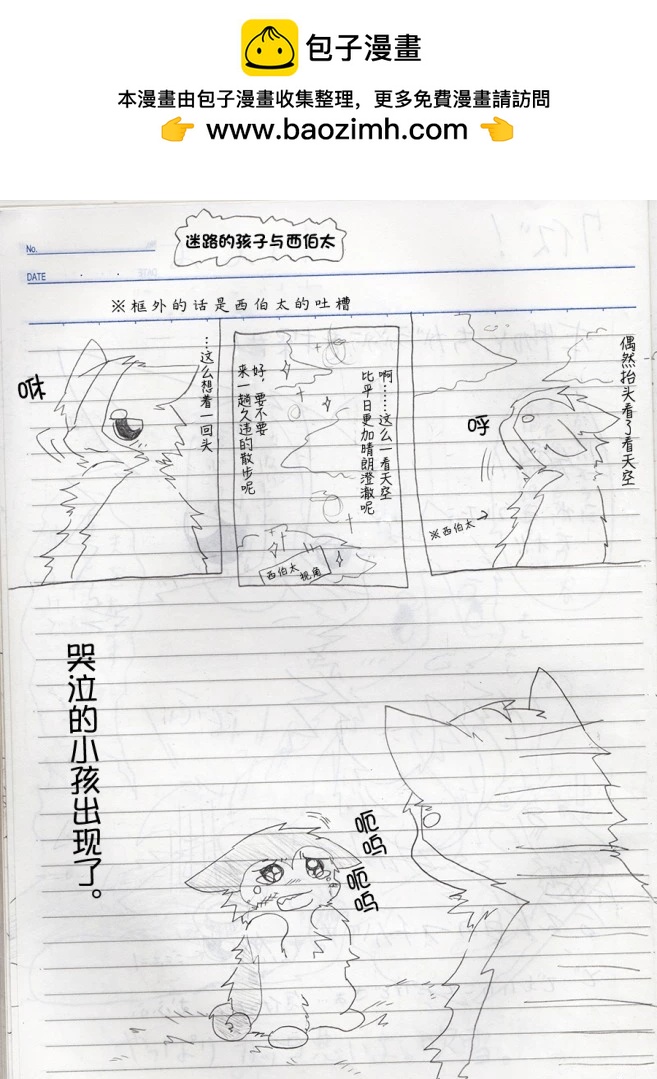 包子漫畫
本漫畫由包子漫畫收集整理，更多免費漫畫請訪問
👉 www.baozimh.com 👈
迷路的孩子与西伯太
No.
DATE
※框外的话是西伯太的吐槽
偶然抬头看了看天空
呼
※西伯太→
啊……这么一看天空
比平日更加晴朗澄澈呢
好，要不要
来一趟久违的散步呢
西伯太视角
…这么想着一回头
咻
呃呜
呃呜
哭泣的小孩出现了。